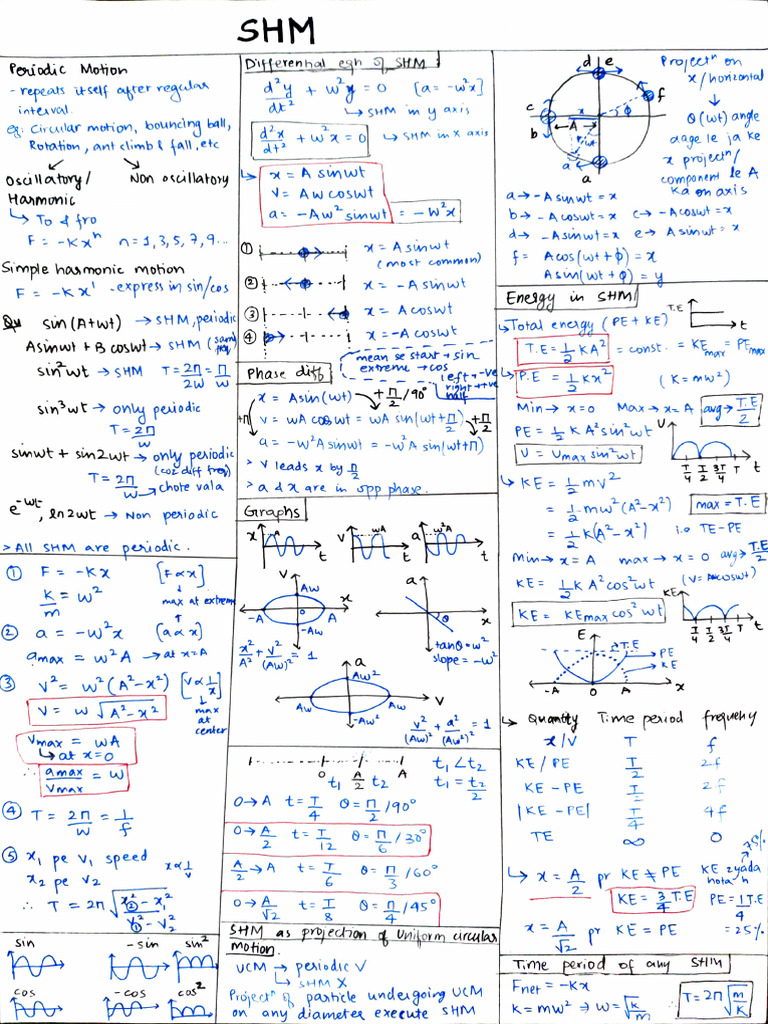 SHM
Periodic Motion
- repeats itself after regular
interval.
eg: Circular motion, bouncing ball,
Rotation, ant climb & fall, etc
Oscillatory/ Non oscillatory
Harmonic
↳ To & fro
F = -Kxⁿ n = 1, 3, 5, 7, 9...
Simple harmonic motion
F = -Kx¹ - express in sin/cos
Qu sin(A+wt) → SHM, periodic
Asinwt + B coswt → SHM (same freq)
sin²wt → SHM T = 2π/2w = π/w
sin³wt → only periodic
T = 2π/w
sinwt + sin2wt → only periodic
(coz diff freq)
T = 2π/w → chote vala
e^-wt, ln2wt → Non periodic
> All SHM are periodic.
① F = -Kx [F∝x]
↓
max at extreme
K/m = w²
② a = -w²x [a∝x]
amax = w²A → at x=A
③ v² = w²(A²-x²) [v∝1/x]
↓
max
at
center
v = w √A²-x²
Vmax = wA
↳ at x=0
∴ amax/Vmax = w
④ T = 2π/w = 1/f
⑤ x₁ pe v₁ speed x∝1/v
x₂ pe v₂
∴ T = 2π √x₂²-x₁²/v₁²-v₂²
② ①
sin -sin sin²
cos -cos cos²
Differential eqn of SHM
d²y/dt² + w²y = 0 [a = -w²x]
↳ SHM in y axis
d²x/dt² + w²x = 0 ↳ SHM in x axis
↳ x = A sinwt
v = Aw coswt
a = -Aw² sinwt = -w²x
① x = A sinwt
(most common)
② x = -A sinwt
③ x = A coswt
④ x = -A coswt
mean se start → sin
extreme → cos
left → -ve
right → +ve
half
Phase diff
x = Asin(wt) +π/2 /90°
+π v = wA coswt = wA sin(wt+π/2) +π/2
a = -w²A sinwt = -w²A sin(wt+π)
> v leads x by π/2
> a & x are in opp phase.
Graphs
x A t v wA t a w²A t
v Aw -A 0 A x -Aw
x²/A² + v²/(Aw)² = 1
a θ x
tanθ = w²
slope = -w²
a Aw² Aw Aw v -Aw²
v²/(Aw)² + a²/(Aw²)² = 1
0 A/2 A t₁ < t₂
t₁ t₂ t₁ = t₂/2
0→A t = T/4 θ = π/2 /90°
0→A/2 t = T/12 θ = π/6 /30°
A/2→A t = T/6 θ = π/3 /60°
0→A/√2 t = T/8 θ = π/4 /45°
SHM as projection of Uniform circular
motion.
UCM → periodic V
↳ SHM X
Projectⁿ of particle undergoing UCM
on any diameter execute SHM
d e
c f
b A x ϕ
a
a
Projectⁿ on
x/horizontal
↓
θ(wt) angle
aage le ja ke
x projectⁿ/
component le A
ka on axis
a → -Asinwt = x
b → -Acoswt = x c → -Acoswt = x
d → -Asinwt = x e → Asinwt = x
f = Acos(wt+ϕ) = x
Asin(wt+ϕ) = y
Energy in SHM
T.E t
↳ Total energy (PE + KE)
T.E = 1/2 KA² = const. = KEmax = PEmax
↳ P.E = 1/2 Kx² (K = mw²)
Min → x=0 Max → x=A avg → T.E/2
PE = 1/2 KA² sin²wt
U = Umax sin²wt
U T/4 T/2 3T/4 T t
↳ KE = 1/2 mv²
= 1/2 mw²(A²-x²) max = T.E
= 1/2 K(A²-x²) i.e TE-PE
Min → x = A max → x = 0 avg → T.E/2
KE = 1/2 KA² cos²wt (V = Awcoswt)
KE = KEmax cos²wt
KE T/4 T/2 3T/4 T t
E T.E PE KE
-A 0 A x
↳ Quantity Time period frequency
x/V T f
KE/PE T/2 2f
KE - PE T/2 2f
|KE - PE| T/4 4f
TE ∞ 0
75%
↳ x = A/2 pr KE ≠ PE KE zyada
hota h
KE = 3/4 T.E PE = 1/4 T.E
x = A/√2 pr KE = PE = 25%
Time period of any SHM
Fnet = -Kx
K = mw² ⇒ w = √K/m ∴ T = 2π √m/K